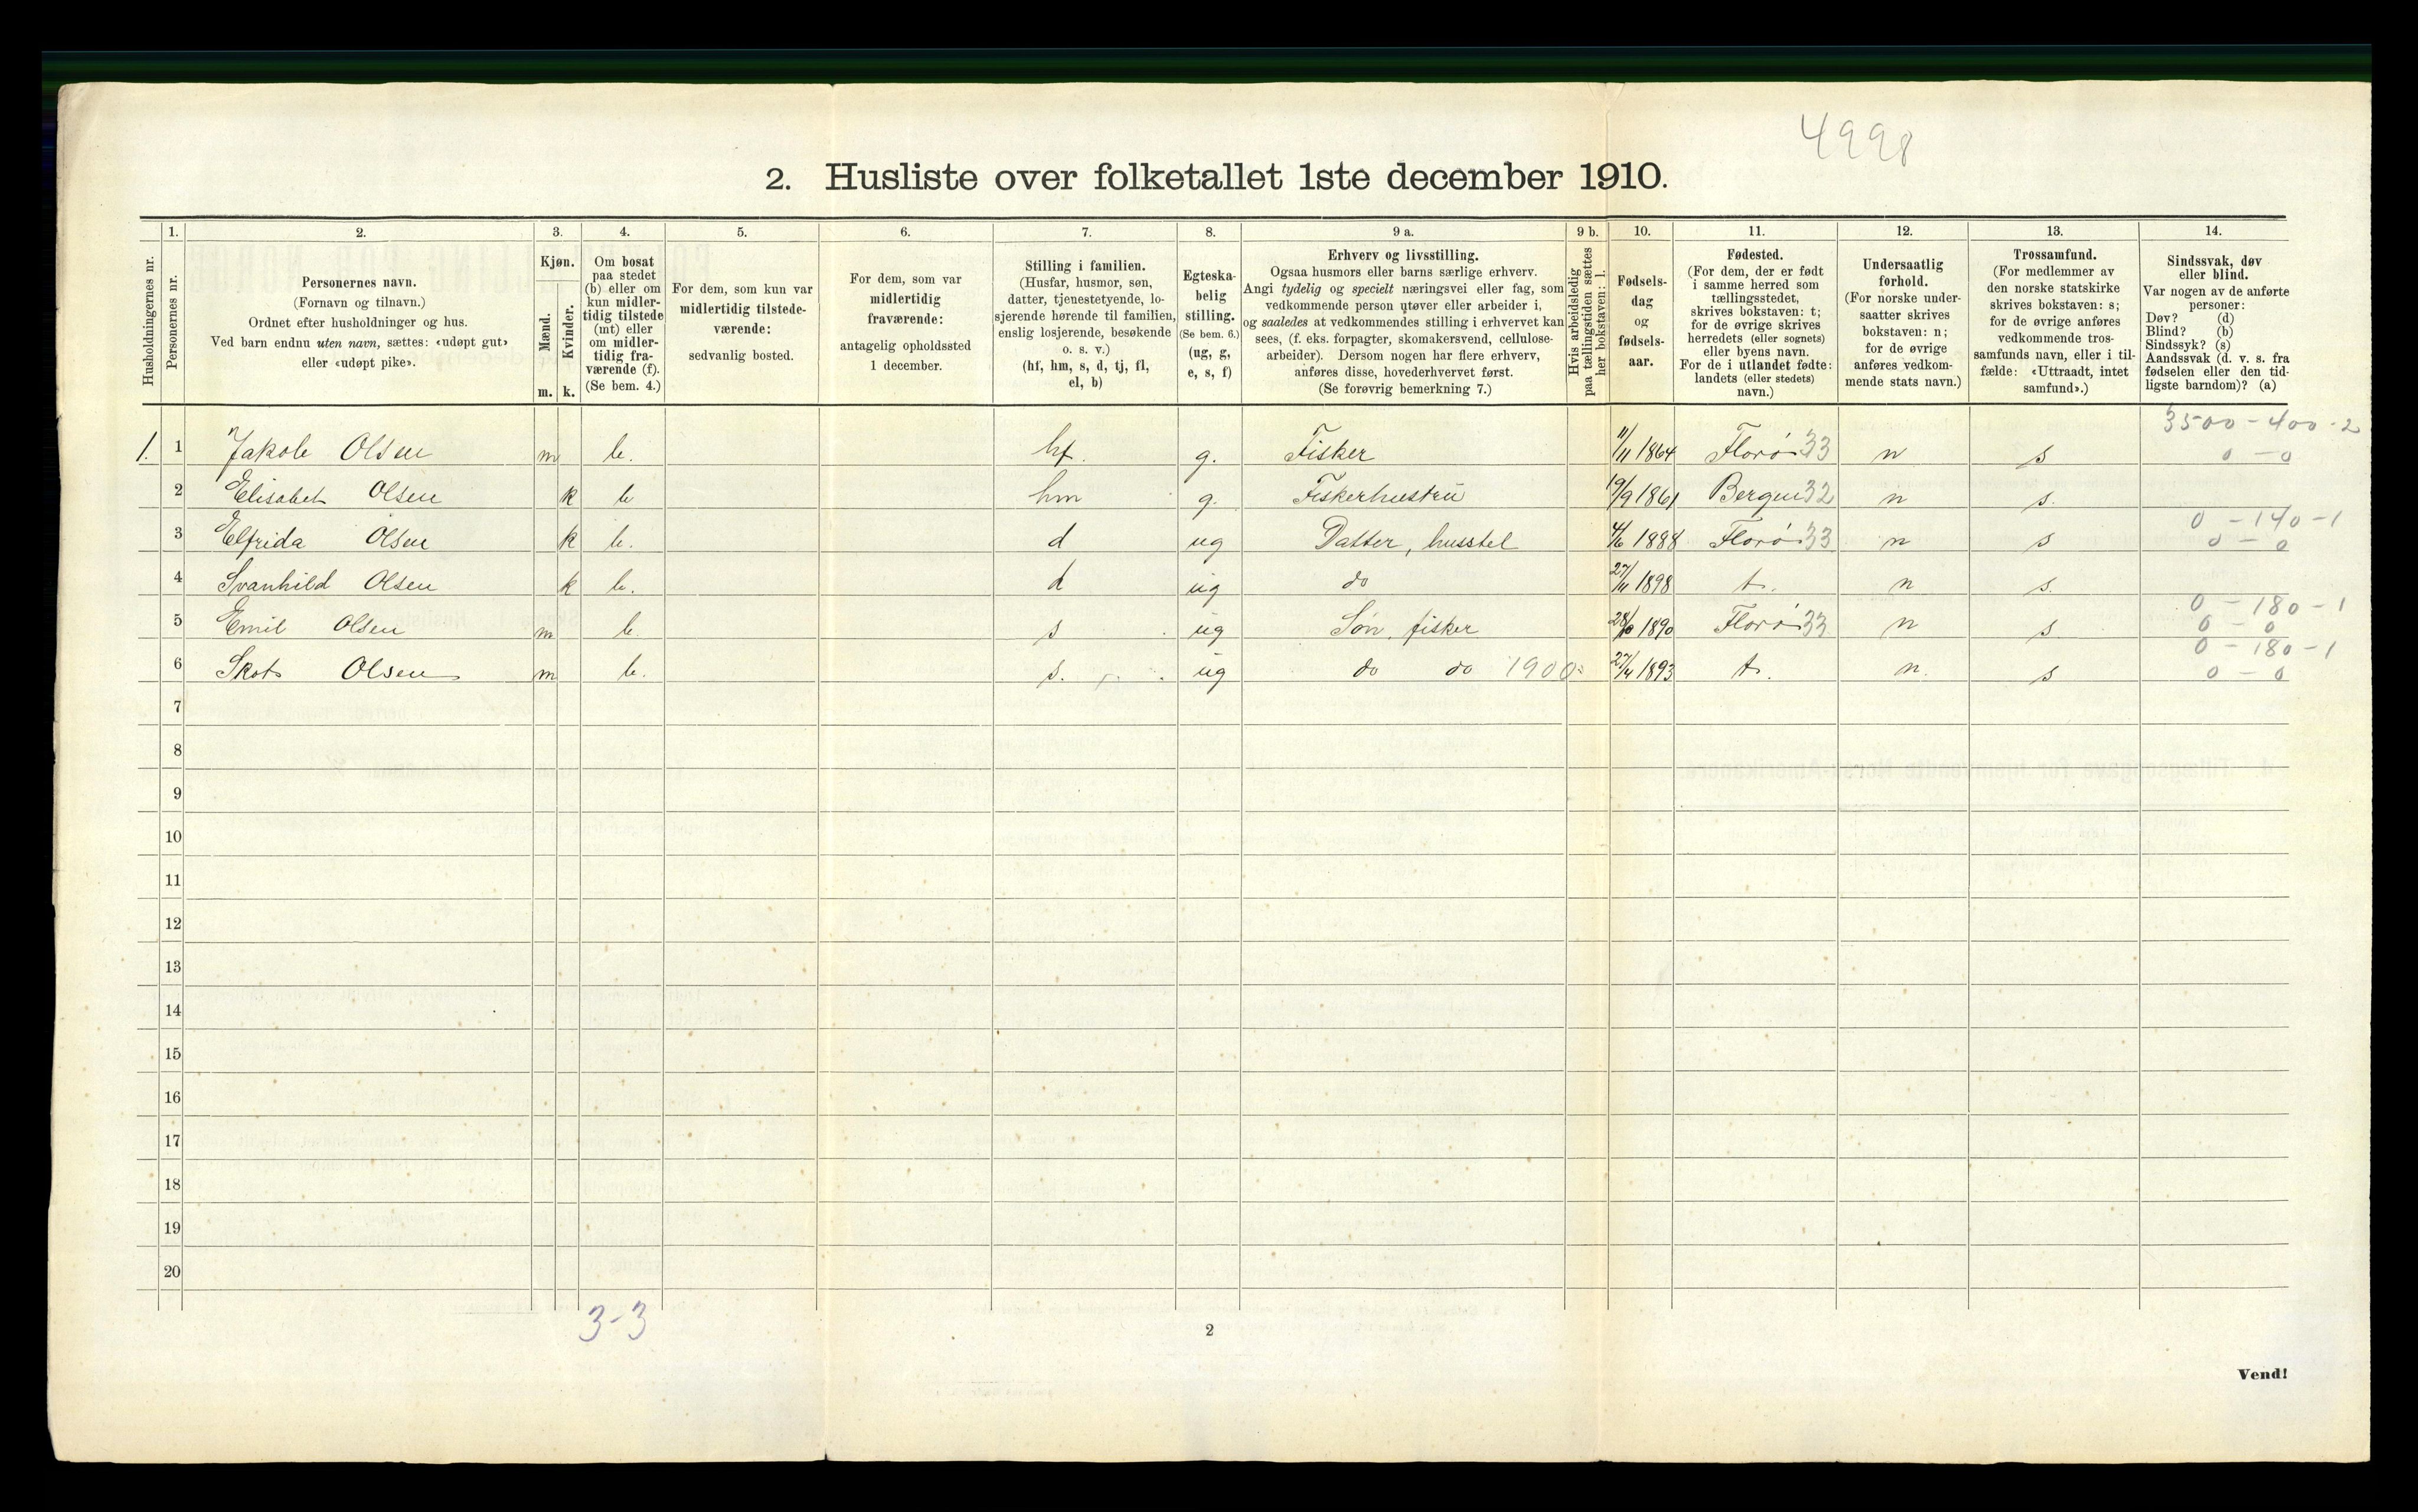 4998
2. Husliste over folketallet 1ste december 1910.
Husholdningernes nr.
1.
Personernes nr.
2.
Personernes navn.
(Fornavn og tilnavn.)
Ordnet efter husholdninger og hus.
Ved barn endnu uten navn, sættes: «udøpt gut»
eller «udøpt pike».
3.
Kjøn.
Mænd.
m.
Kvinder.
k.
4.
Om bosat
paa stedet
(b) eller om
kun midler-
tidig tilstede
(mt) eller
om midler-
tidig fra-
værende (f).
(Se bem. 4.)
5.
For dem, som kun var
midlertidig tilstede-
værende:
sedvanlig bosted.
6.
For dem, som var
midlertidig
fraværende:
antagelig opholdssted
1 december.
7.
Stilling i familien.
(Husfar, husmor, søn,
datter, tjenestetyende, lo-
sjerende hørende til familien,
enslig losjerende, besøkende
o. s. v.)
(hf, hm, s, d, tj, fl,
el, b)
8.
Egteska-
belig
stilling.
(Se bem. 6.)
(ug, g,
e, s, f)
9 a.
Erhverv og livsstilling.
Ogsaa husmors eller barns særlige erhverv.
Angi tydelig og specielt næringsvei eller fag, som
vedkommende person utøver eller arbeider i,
og saaledes at vedkommendes stilling i erhvervet kan
sees, (f. eks. forpagter, skomakersvend, cellulose-
arbeider). Dersom nogen har flere erhverv,
anføres disse, hovederhvervet først.
(Se forøvrig bemerkning 7.)
9 b.
Hvis arbeidsledig
paa tællingstiden sættes
her bokstaven: l.
10.
Fødsels-
dag
og
fødsels-
aar.
11.
Fødested.
(For dem, der er født
i samme herred som
tællingsstedet,
skrives bokstaven: t;
for de øvrige skrives
herredets (eller sognets)
eller byens navn.
For de i utlandet fødte:
landets (eller stedets)
navn.)
12.
Undersaatlig
forhold.
(For norske under-
saatter skrives
bokstaven: n;
for de øvrige
anføres vedkom-
mende stats navn.)
13.
Trossamfund.
(For medlemmer av
den norske statskirke
skrives bokstaven: s;
for de øvrige anføres
vedkommende tros-
samfunds navn, eller i til-
fælde: «Uttraadt, intet
samfund».)
14.
Sindssvak, døv
eller blind.
Var nogen av de anførte
personer:
Døv? (d)
Blind? (b)
Sindssyk? (s)
Aandssvak (d. v. s. fra
fødselen eller den tid-
ligste barndom)? (a)
3500 - 400 - 2
1. 1 Jakob Olsen m b. hf. g. Fisker 11/11 1864 Florø 33 n s 0 - 0
2 Elisabet Olsen k b hm g. Fiskerhustru 19/9 1861 Bergen 32 n s.
0 - 140 - 1
3 Elfrida Olsen k b. d ug Datter, husstel 4/6 1888 Florø 33 n s 0 - 0
4 Svanhild Olsen k b. d ug do 27/11 1898 t. n s.
0 - 180 - 1
5 Emil Olsen m b. s ug Søn, fisker 1890 Florø 33 n s 0 - 0
0 - 180 - 1
6 Olsen m b. s. ug do do 1900 27/4 1893 t. n. s 0 - 0
7
8
9
10
11
12
13
14
15
16
17
18
19
20
3-3
2
Vend!